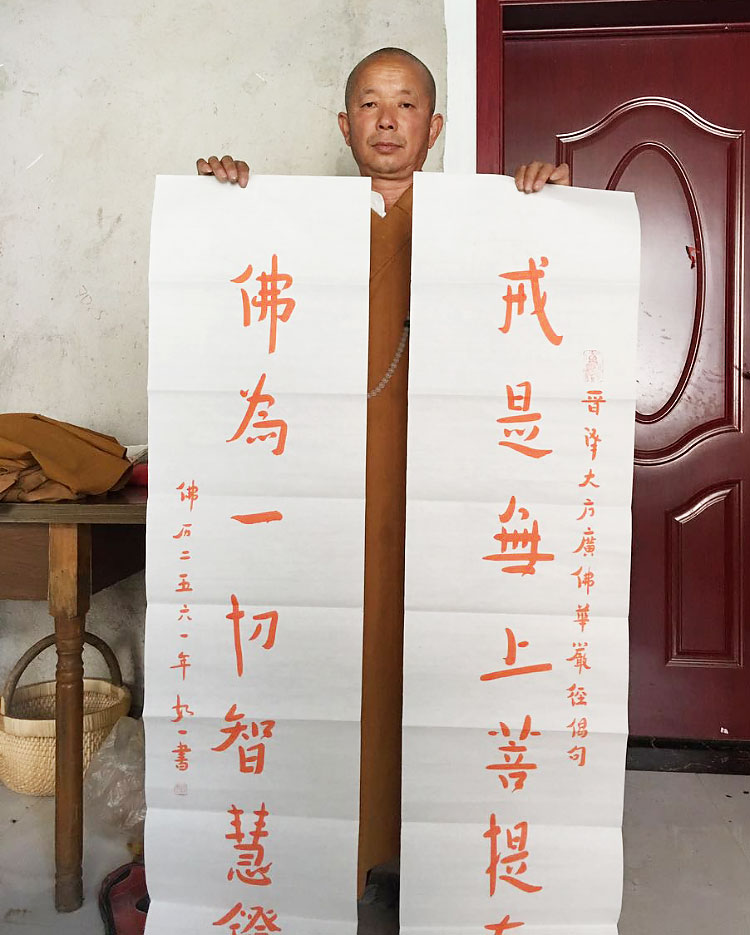 戒是無上菩提
晉譯大方廣佛華嚴經偈句
佛為一切智慧鐙
佛历二五六一年 一書